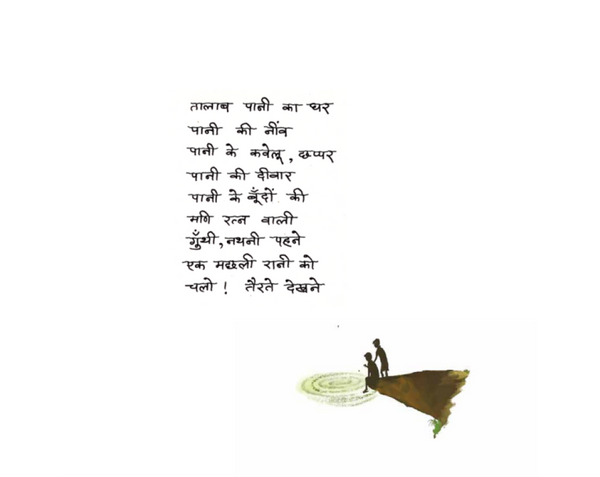 तालाब पानी का घर
पानी की नींव
पानी के कवेलू, छप्पर
पानी की दीवार
पानी के बूँदों की
मणि रत्न वाली
गुँथी, नथनी पहने
एक मछली रानी को
चलो! तैरते देखने